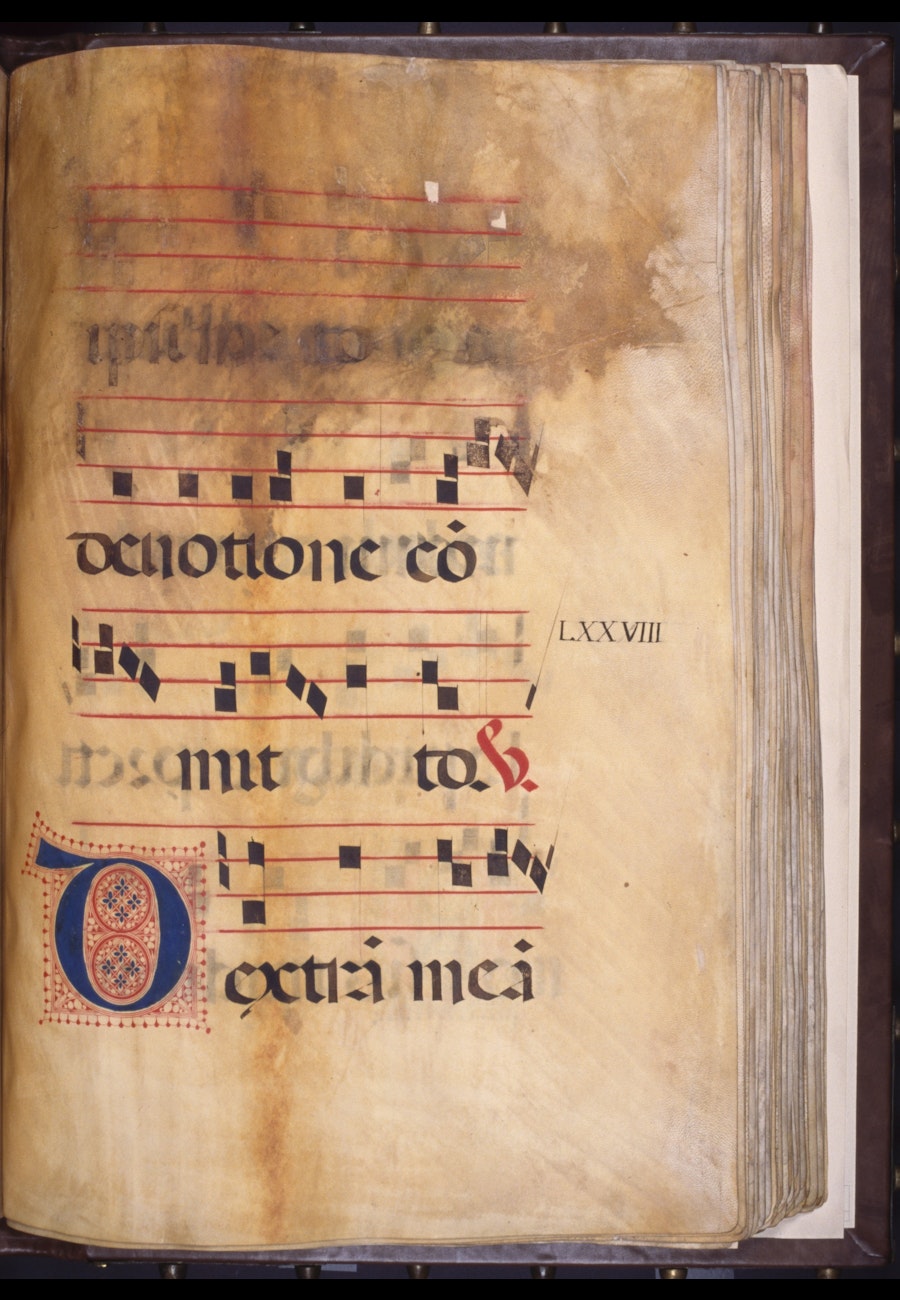 devotione cõ
LXXVIII
mit to. ℣.
Dextrã meã